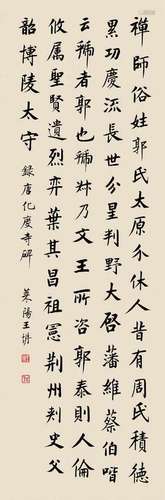 禪師俗姓郭氏太原介休人昔有周氏積德
累功慶流長世分星判野大啓藩維蔡伯喈
云虢者郭也虢叔乃文王所咨郭泰則人倫
攸属聖賢遺烈弈葉其昌祖憲荆州刾史父
韶博陵太守
録唐化度寺碑
萊陽王垿